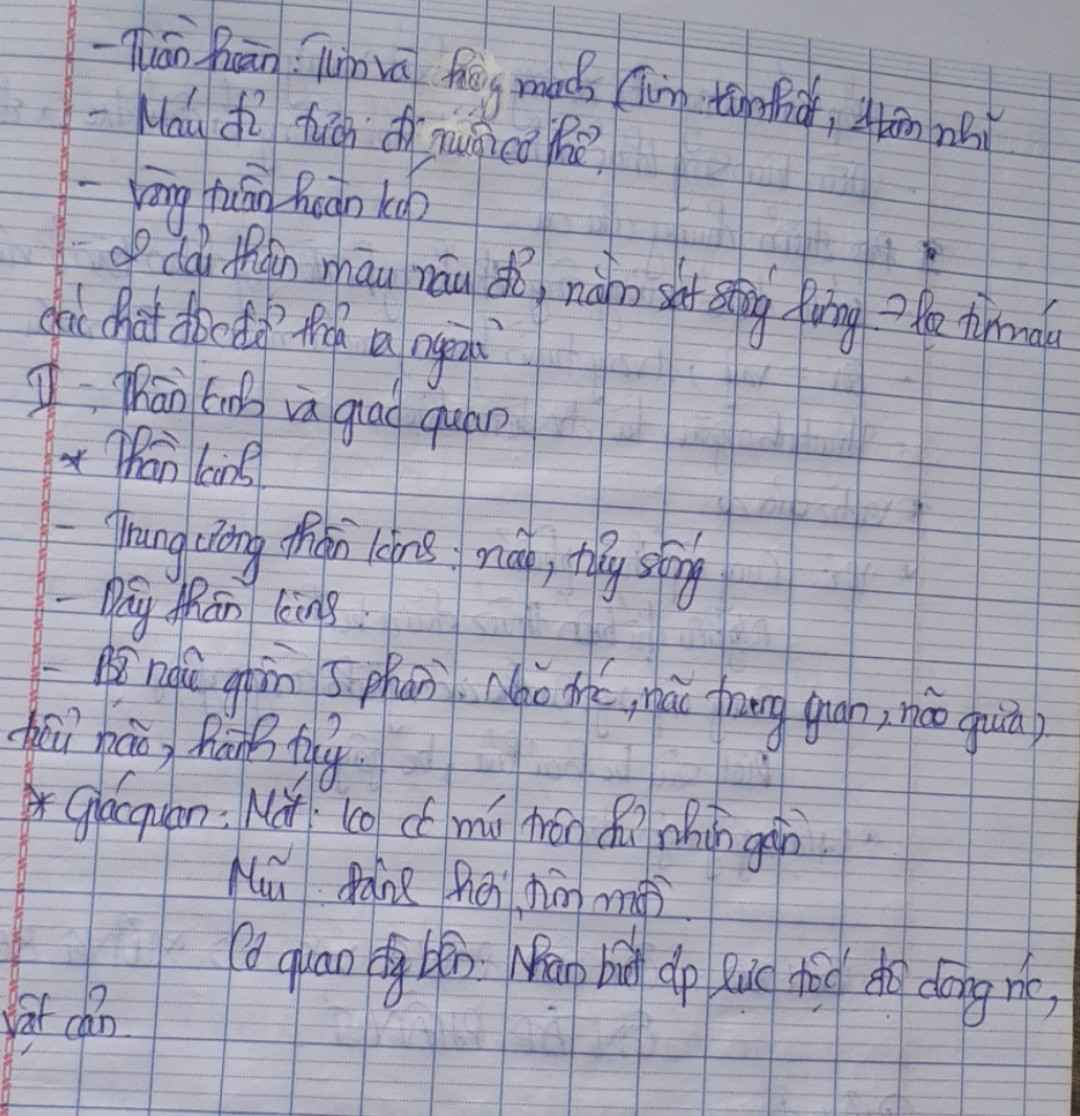 - Tuần hoàn: Tim và hệ mạch (Tim: tâm thất, tâm nhĩ
- Máu đỏ tươi đi nuôi cơ thể.
- Vòng tuần hoàn kín
- 2 dải thận màu nâu đỏ, nằm sát sống lưng → lọc từ máu
các chất độc để thải ra ngoài
II - Thần kinh và giác quan
* Thần kinh
- Trung ương thần kinh: não, tủy sống
- Dây thần kinh.
- Bộ não gồm 5 phần: Não trc, não trung gian, não giữa,
tiểu não, hành tủy.
* Giác quan: Mắt: ko có mí trên chỉ nhìn gần.
Mũi: đánh hơi, tìm mồi.
Cơ quan đg bên: Nhận biết áp lực tốc độ dòng nc,
vật cản